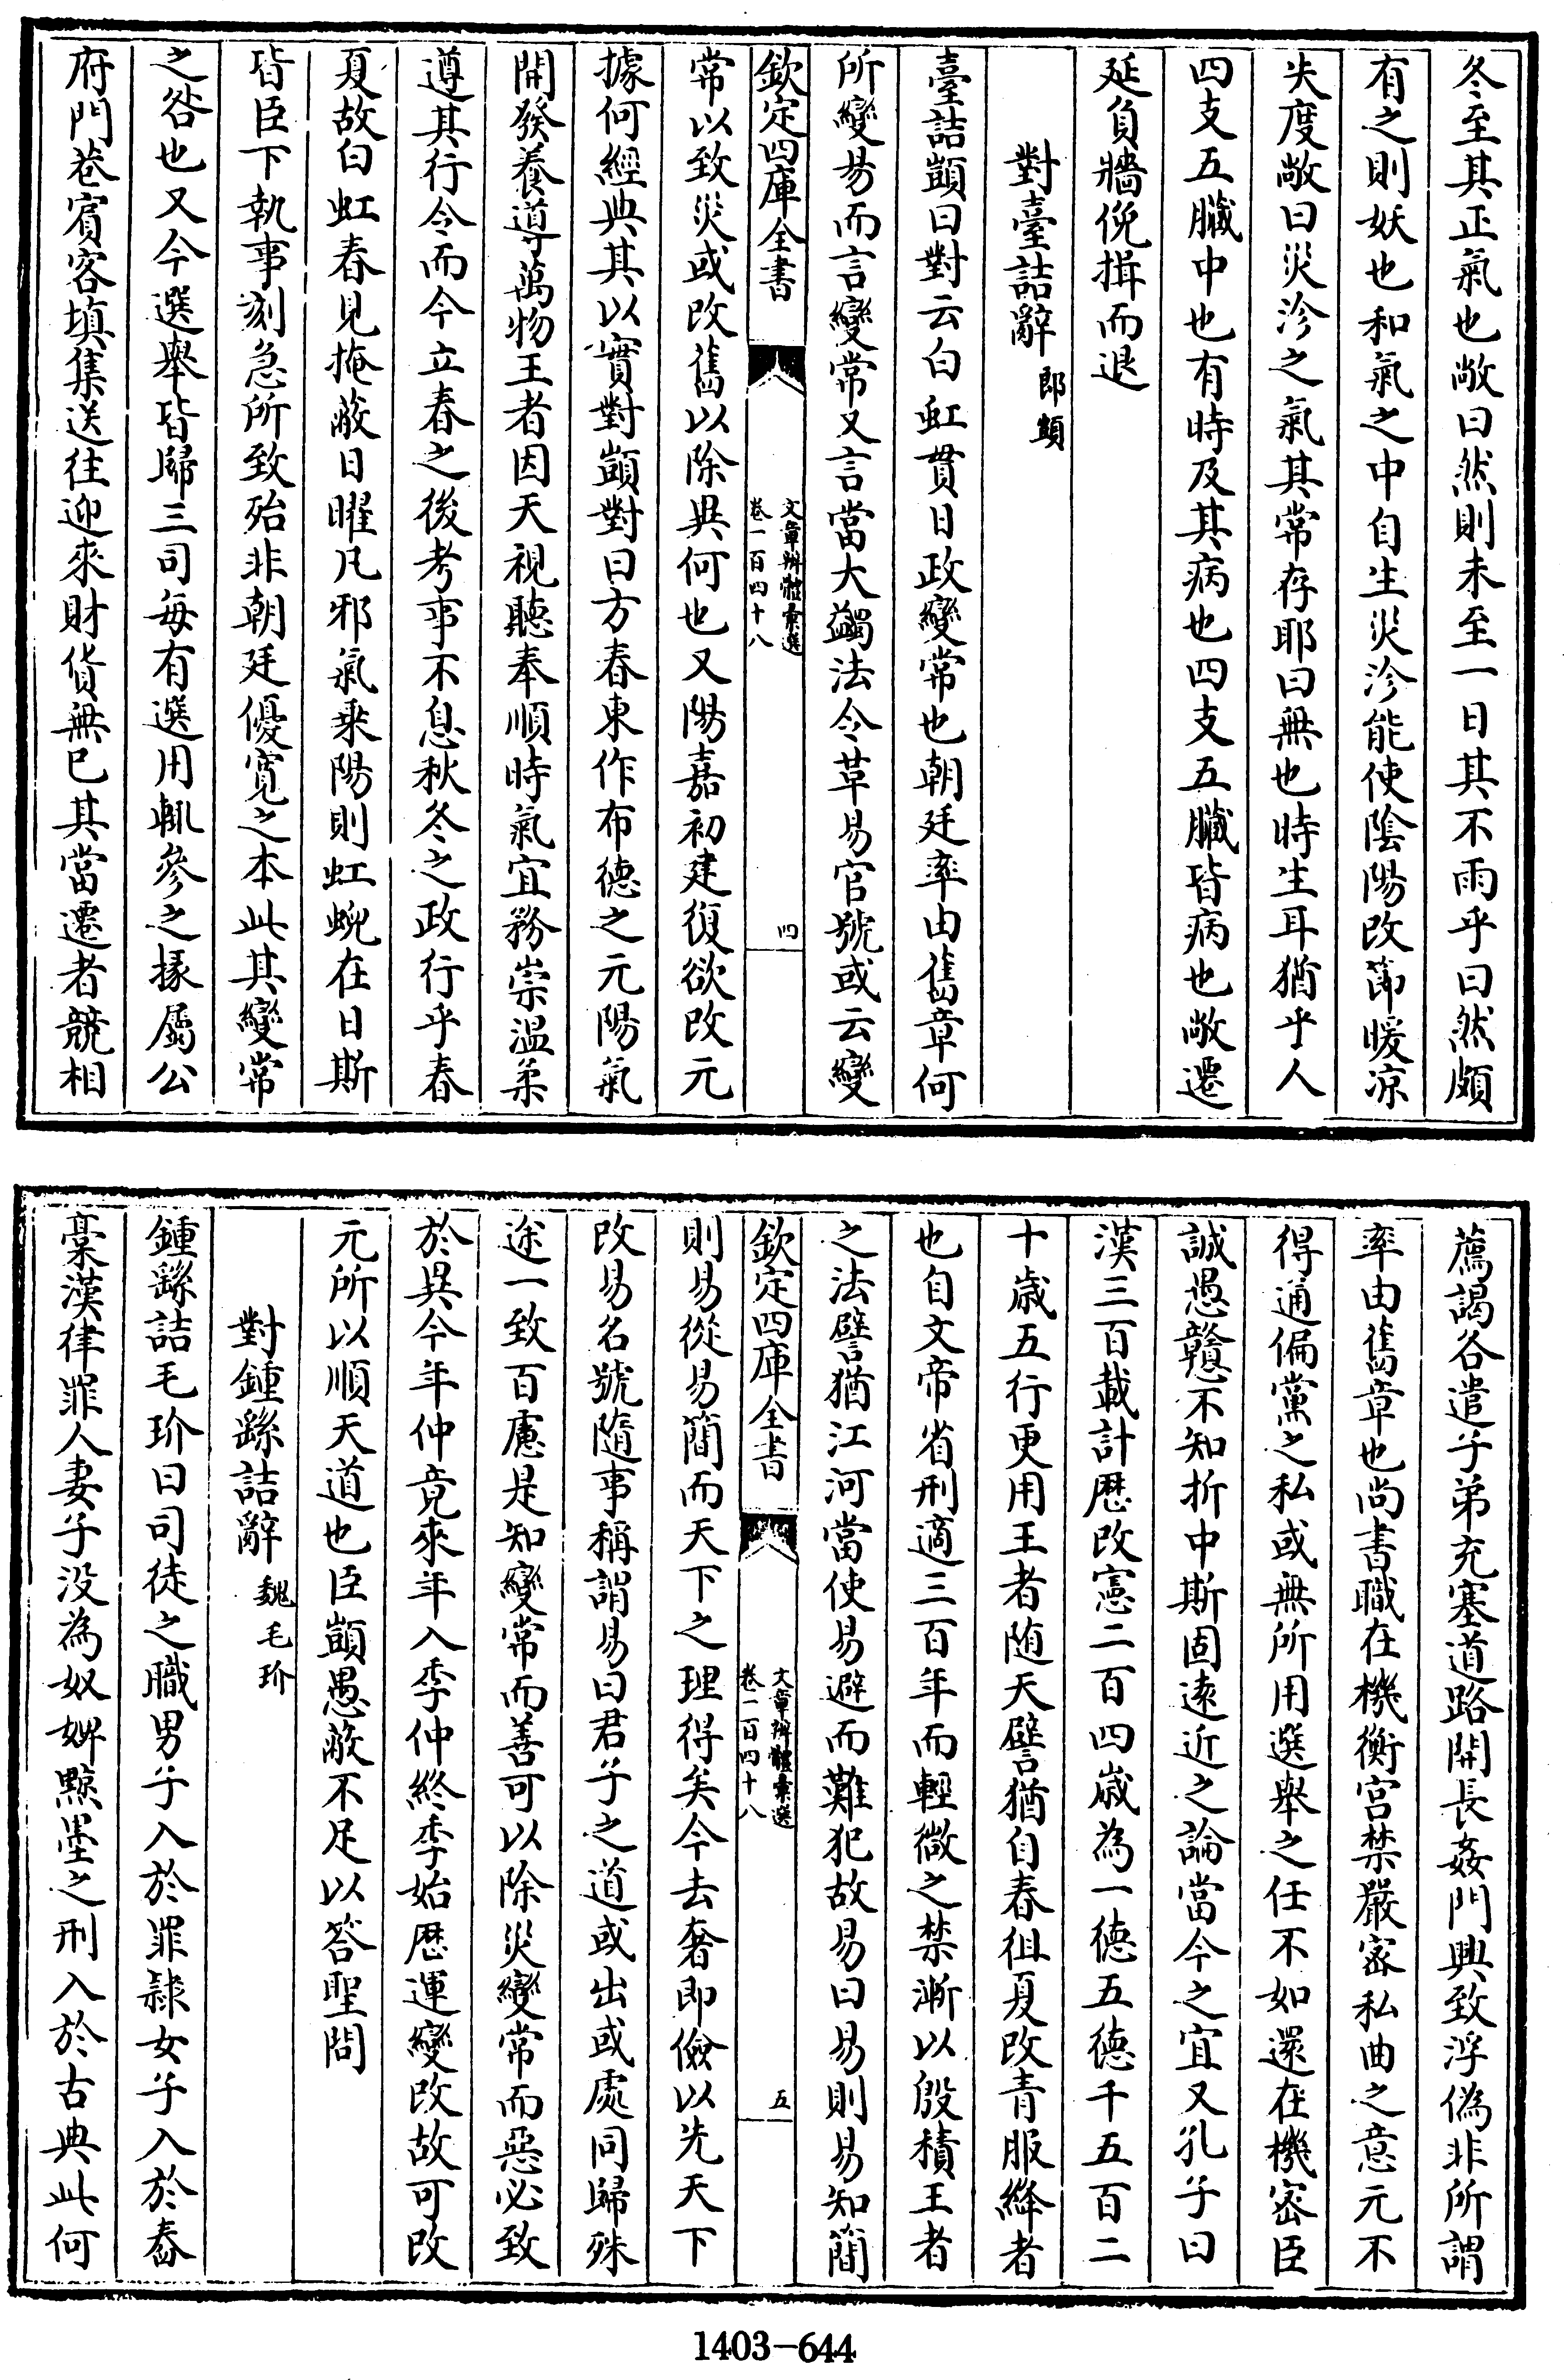 冬至其正氣也敞曰然則未至一日其不雨乎曰然頗
有之則妖也和氣之中自生災沴能使陰陽改節暖凉
失度敞曰災沴之氣其常存耶曰無也時生耳猶乎人
四支五臟中也有時及其病也四支五臟皆病也敞遷
延負牆俛揖而退
對臺詰辭 郎顗
臺詰顗曰對云白虹貫日政變常也朝廷率由舊章何
所變易而言變常又言當大蠲法令革易官號或云變
欽定四庫全書
文章辨體彙選
卷一百四十八
四
常以致災或改舊以除異何也又陽嘉初建復欲改元
據何經典其以實對顗對曰方春東作布德之元陽氣
開發養導萬物王者因天視聽奉順時氣宜務崇溫柔
遵其行令而今立春之後考事不息秋冬之政行乎春
夏故白虹春見掩蔽日曜凡邪氣乘陽則虹蜺在日斯
皆臣下執事刻急所致殆非朝廷優寬之本此其變常
之咎也又今選舉皆歸三司每有選用輒參之掾屬公
府門巷賓客填集送往迎來財貨無已其當遷者競相
薦謁各遣子弟充塞道路開長姦門興致浮偽非所謂
率由舊章也尚書職在機衡宫禁嚴密私曲之意元不
得通偏黨之私或無所用選舉之任不如還在機密臣
誠愚戇不知折中斯固遠近之論當今之宜又孔子曰
漢三百載計歷改憲二百四歲為一德五德千五百二
十歲五行更用王者隨天譬猶自春徂夏改青服絳者
也自文帝省刑適三百年而輕微之禁漸以殷積王者
之法譬猶江河當使易避而難犯故易曰易則易知簡
欽定四庫全書
文章辨體彙選
卷一百四十八
五
則易從易簡而天下之理得矣今去奢即儉以先天下
改易名號隨事稱謂易曰君子之道或出或處同歸殊
途一致百慮是知變常而善可以除災變常而惡必致
於異今年仲竟來年入季仲終季始歷運變改故可改
元所以順天道也臣顗愚蔽不足以答聖問
對鍾繇詰辭 魏毛玠
鍾繇詰毛玠曰司徒之職男子入於罪隸女子入於舂
槀漢律罪人妻子没為奴婢黥墨之刑入於古典此何
1403-644